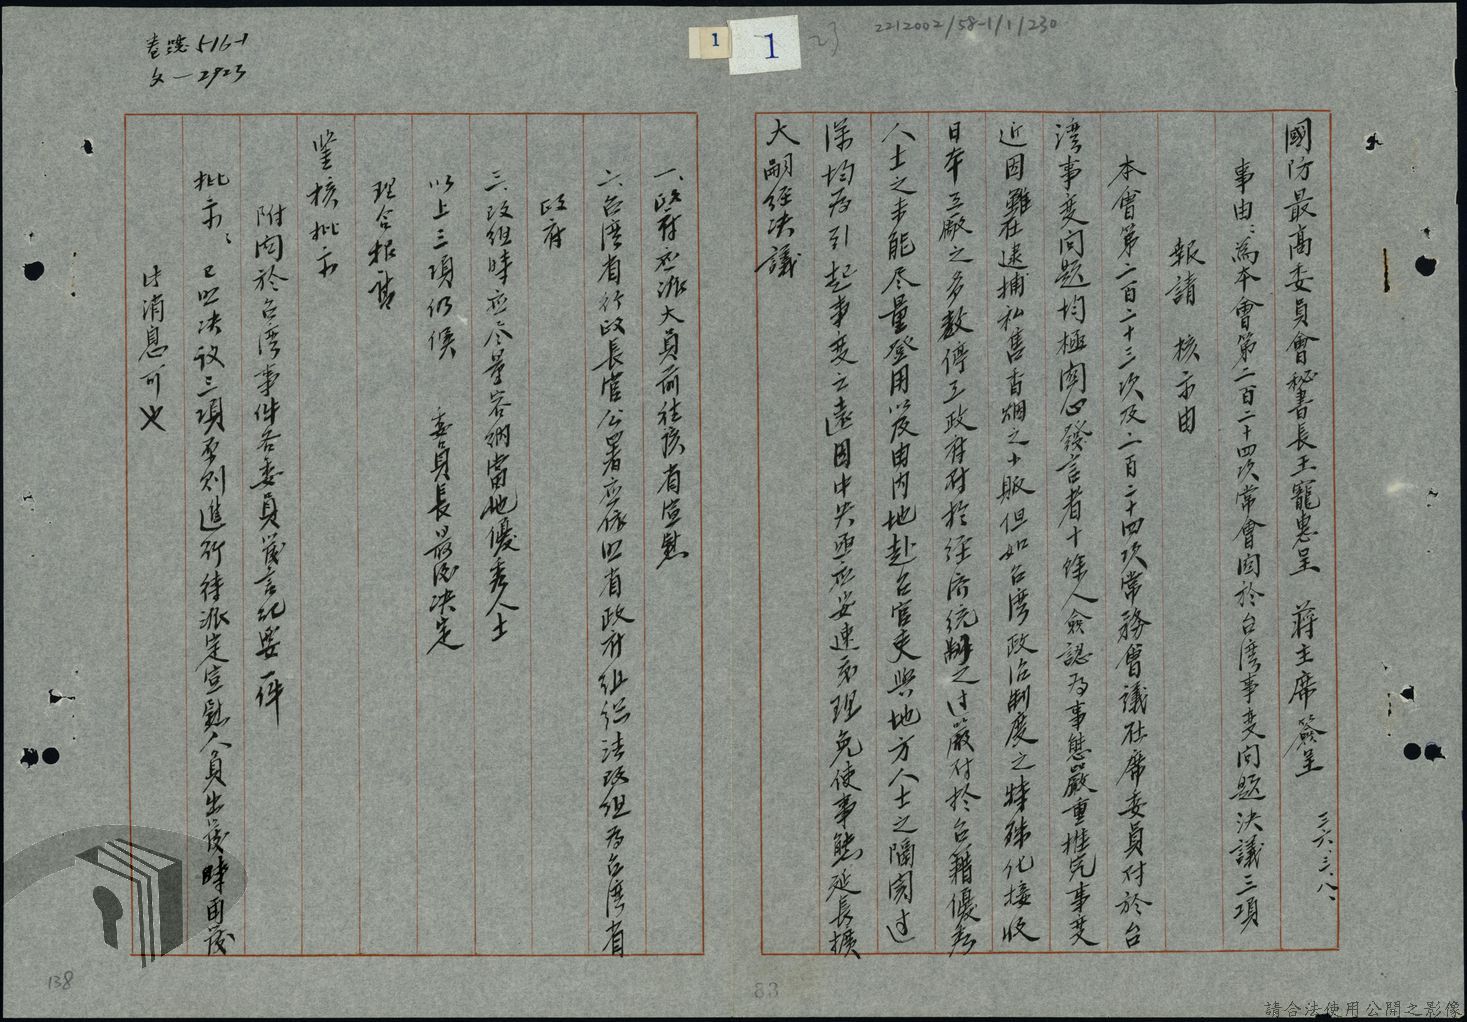 卷號 516-1
文一2923
1
1
23
2212002/58-1/1/230
國防最高委員會秘書長王寵惠呈 蔣主席 簽呈 三六、三、八、
事由：為本會第二百二十四次常會関於台湾事变问题決議三項
報請 核示由
本會第二百二十三次及二百二十四次常務會議在席委員对於台
湾事变问题均極関心發言者十餘人僉認為事態嚴重推究事变
近因雖在逮捕私售香烟之小販但如台湾政治制度之特殊化接收
日本工厰之多数停工政府对於经济统制之过嚴对於台籍優秀
人士之未能尽量登用以及由内地赴台官吏與地方人士之隔閡过
深均為引起事变之遠因中央亟应妥速处理免使事態延長擴
大嗣经决議
一、政府应派大員前往該省宣慰
二、台湾省行政長官公署应依照省政府组织法改组為台湾省
政府
三、改组時应尽量容納當地優秀人士
以上三項仍候 委員長最後决定
理合报請
鉴核批示
附関於台湾事件各委員發言纪要一件
批示：已照决议三項原则進行待派定宣慰人員出發時再發
此消息可也
138
83
請合法使用公開之影像